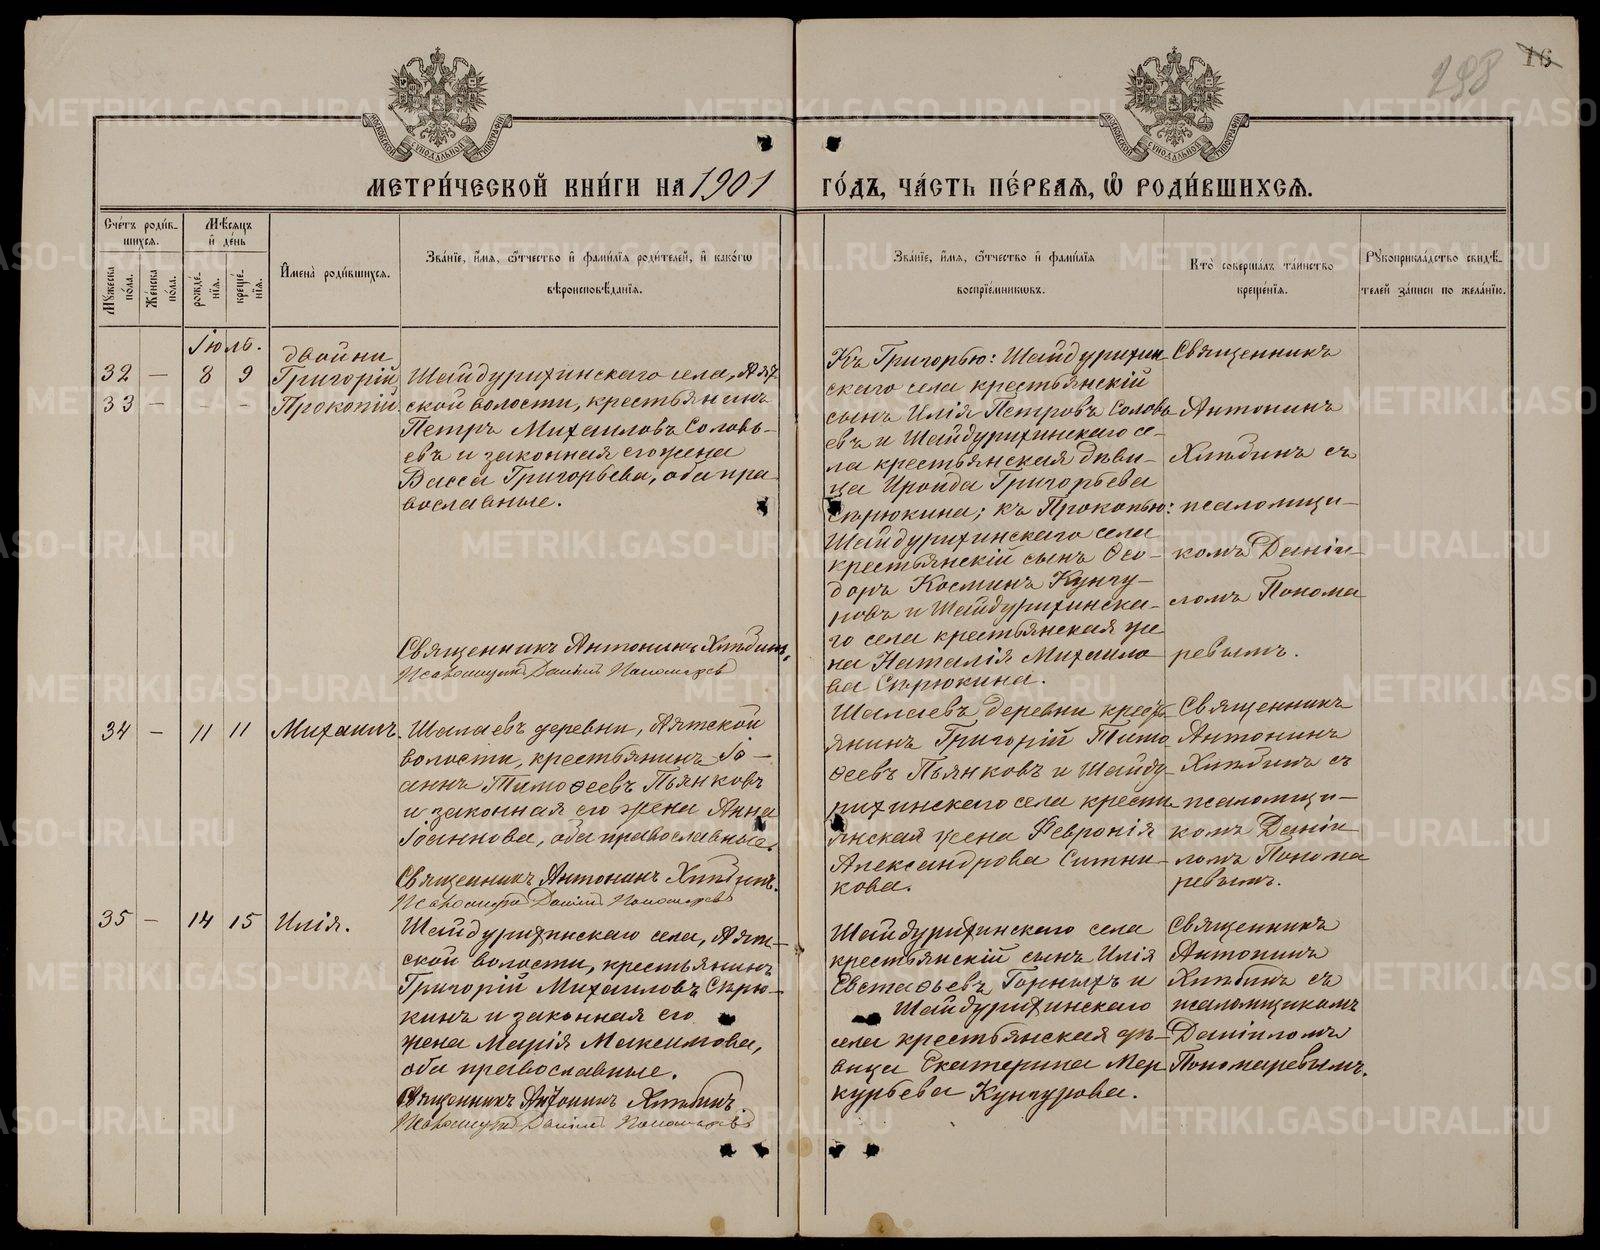 298
16
МЕТРИ́ЧЕСКОЙ КНИ́ГИ НА 1901 ГО́ДЪ, ЧА́СТЬ ПЕ́РВАЯ, Ѡ҆ РОДИ́ВШИХСЯ.
Сче́тъ роди́в-
шихся.
Мѣ́сяцъ
и҆ де́нь
Мꙋ́жеска
по́ла.
Же́нска
по́ла.
рожде́-
нїя.
креще́-
нїя.
И҆мена̀ роди́вшихся.
Зва́нїе, и҆́мя, ѻ҆́тчество и҆ фами́лїя роди́телей, и҆ како́гѡ
вѣроисповѣ́данїя.
Зва́нїе, и҆́мя, ѻ҆́тчество и҆ фами́лїя
воспрїе́мникѡвъ.
Кто̀ соверша́лъ та́инство
креще́нїя.
Рꙋкоприкла́дство свидѣ́-
телей за́писи по жела́нїю.
Іюль.
двойни
32 — 8 9 Григорій
33 — - - Прокопій.
Шайдурихинскаго села, Аят
ской волости, крестьянинъ
Петръ Михаиловъ Соловь-
евъ и законная его жена
Васса Григорьева, оба пра-
вославные.
Священникъ Антонинъ Хлѣбинъ.
Псаломщикъ Даніилъ Пономаревъ
Къ Григорью: Шайдурихин
скаго села крестьянскій
сынъ Илія Петровъ Соловь
евъ и Шайдурихинскаго се-
ла крестьянская дѣви-
ца Ироида Григорьева
Сѣрюкина; къ Прокопью:
Шайдурихинскаго села
крестьянскій сынъ Ѳео-
доръ Косминъ Кунгу-
ровъ и Шайдурихинска-
го села крестьянская же
на Наталія Михаило
ва Сѣрюкина.
Священникъ
Антонинъ
Хлѣбинъ съ
псаломщи-
комъ Даніи-
ломъ Понома
ревымъ.
34 — 11 11 Михаилъ.
Шалаевъ деревни, Аятской
волости, крестьянинъ Іо-
аннъ Тимоѳеевъ Пьянковъ
и законная его жена Анна
Іоаннова, оба православные.
Священникъ Антонинъ Хлѣбинъ.
Псаломщикъ Даніилъ Пономаревъ
Шалаевъ деревни кресть
янинъ Григорій Тимо
ѳеевъ Пьянковъ и Шайду-
рихинскаго села кресть
янская жена Февронія
Александрова Ситни-
кова.
Священникъ
Антонинъ
Хлѣбинъ съ
псаломщи-
комъ Даніи-
ломъ Понома
ревымъ.
35 — 14 15 Илія.
Шайдурихинскаго села, Аят-
ской волости, крестьянинъ
Григорій Михаиловъ Сѣрю-
кинъ и законная его
жена Марія Максимова,
оба православные.
Священникъ Антонинъ Хлѣбинъ.
Псаломщикъ Даніилъ Пономаревъ
Шайдурихинскаго села
крестьянскій сынъ Илія
Евстаѳьевъ Горныхъ и
Шайдурихинскаго
села крестьянская дѣ-
вица Екатерина Мер
курьева Кунгурова.
Священникъ
Антонинъ
Хлѣбинъ съ
псаломщикомъ
Даніиломъ
Пономаревымъ.